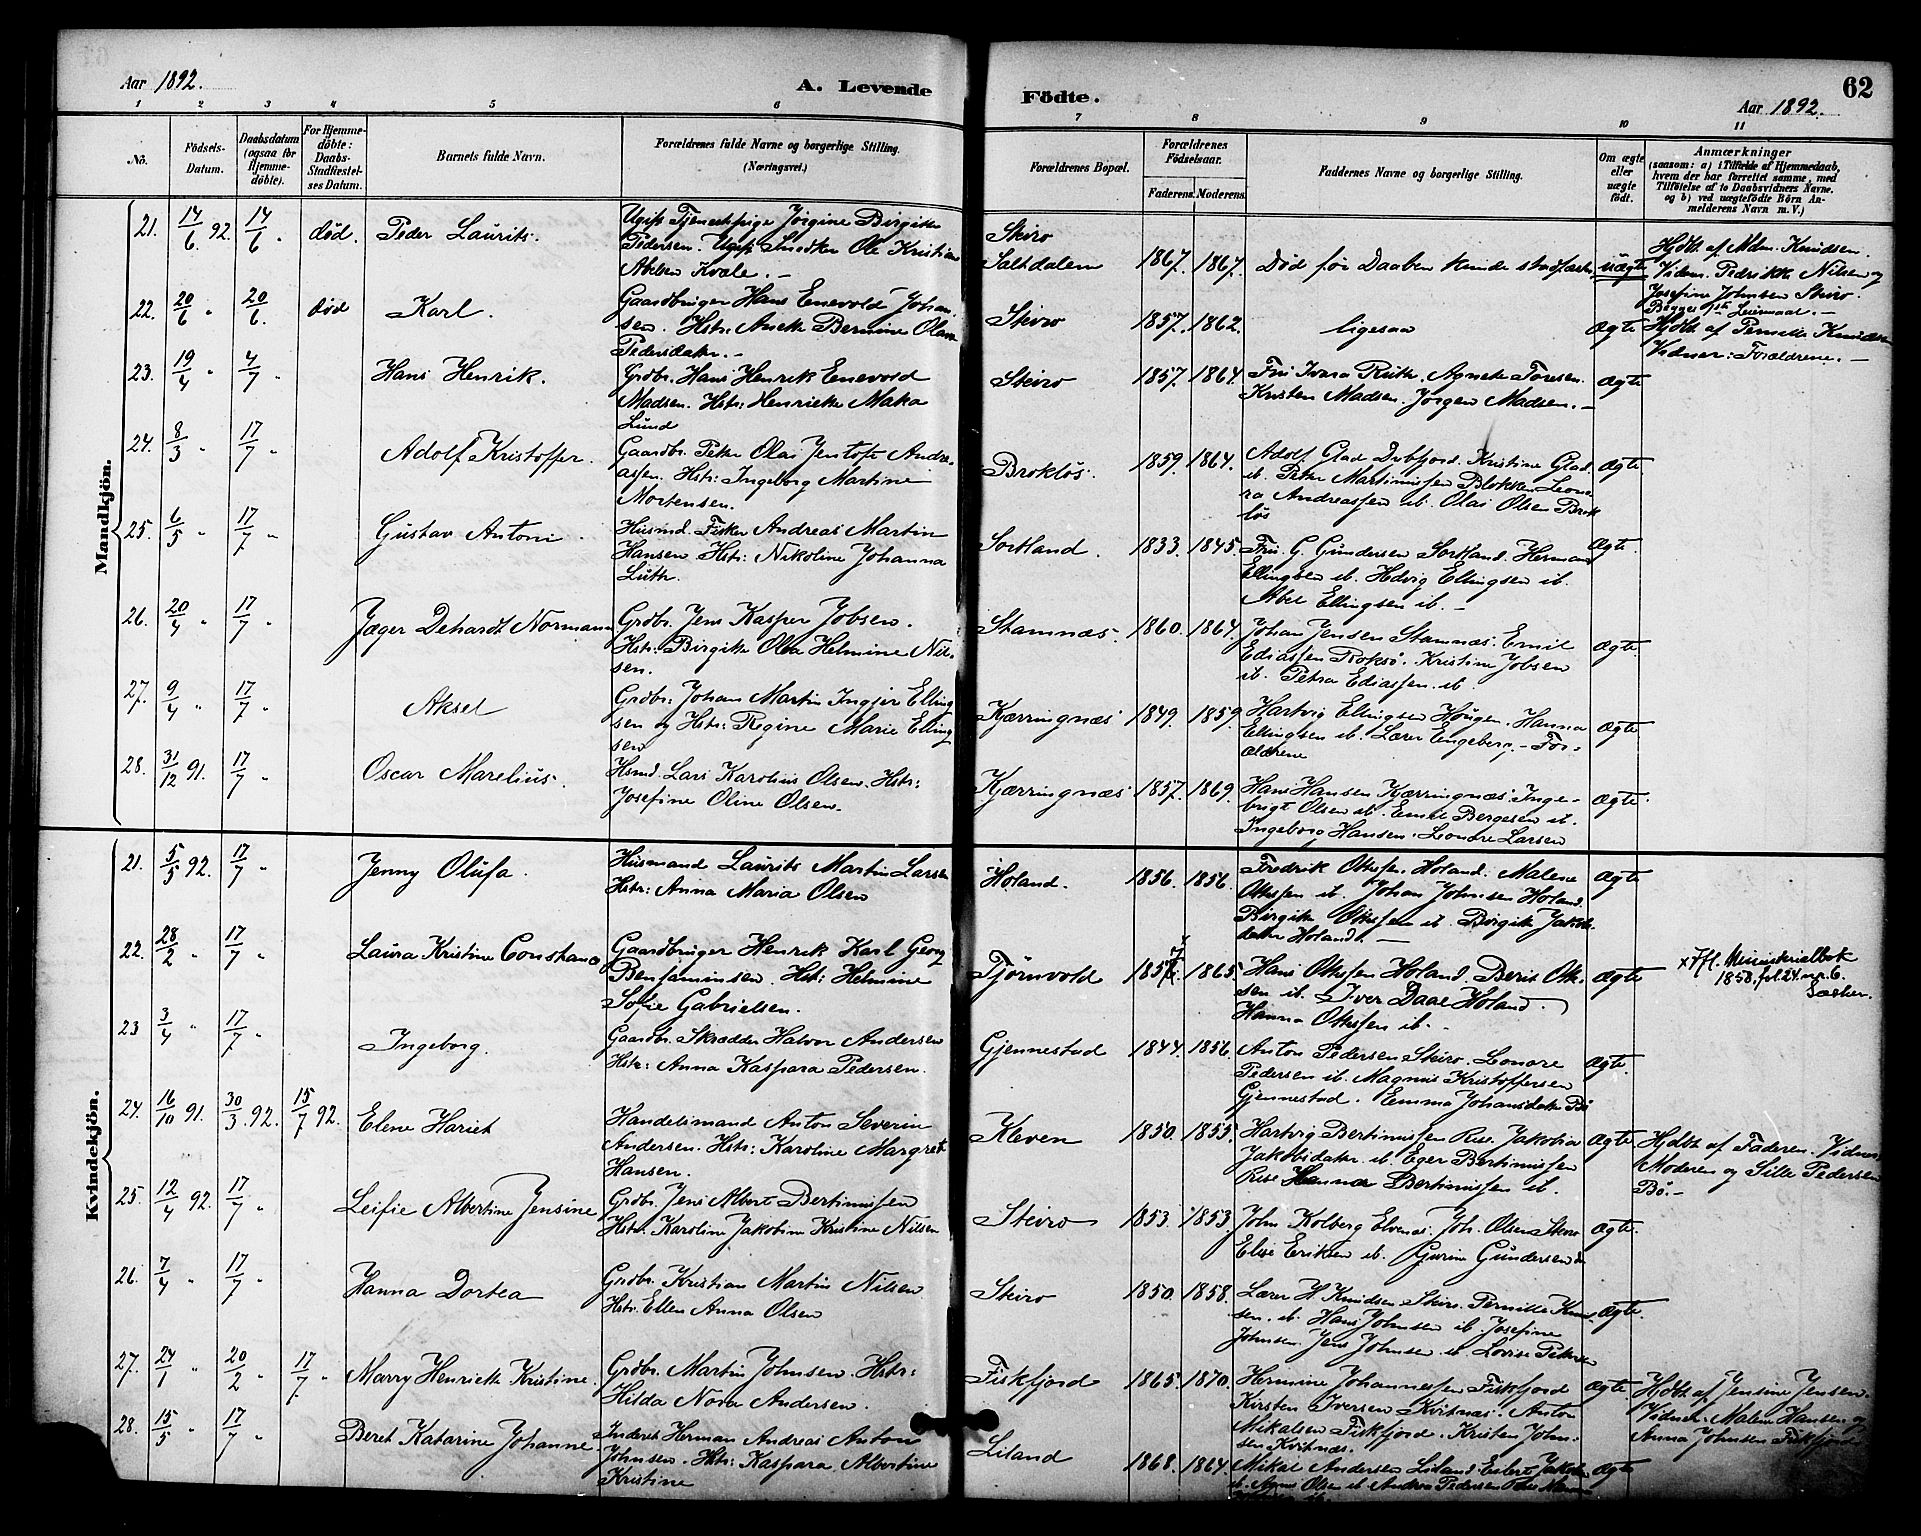 Aar 1892.
A. Levende
Födte.
62
Aar 1892.
1 2 3 4 5 6 7 8 9 10 11
No.
Födsels-
Datum.
Daabsdatum
(ogsaa for
Hjemme-
döbte).
For Hjemme-
döbte:
Daabs-
Stadfæstel-
ses Datum.
Barnets fulde Navn.
Forældrenes fulde Navne og borgerlige Stilling.
(Næringsvei.)
Forældrenes Bopæl.
Forældrenes
Födselsaar.
Faderens. Moderens.
Faddernes Navne og borgerlige Stilling.
Om ægte
eller
uægte
födt.
Anmærkninger
(saasom: a) i Tilfælde af Hjemmedaab,
hvem der har forrettet samme, med
Tilföielse af to Daabsvidners Navne.
og b) ved uægtefödte Börn An-
melderens Navn m. V.)
Mandkjön.
21. 14/6 92. 14/6 „ død. Peder Laurits.
Ugift Tjenestepige Jörgine Birgitte
Pedersen. Ugift Snedker Ole Kristian
Abelsen Kvale. –
Skeiro
Saltdalen 1867. 1867. Død før Daaben kunde stadfæstes uægte
Hjdbt af Mdm. Knudsen.
Vidner Pedrikke Nilsen og
Josefine Johnsen Steiro.
Begges 1ste Leiermaal. –
22. 20/6 „ 20/6. død Karl.
Gaardbruger Hans Enevold Johan-
sen. Hstr: Anette Bernine Olava
Pedersdatter. –
Steiro 1857. 1862. ligesaa Ægte
Hjdbt af Pernille Knudsen
Vidner: Forældrene. –
23. 19/4 „ 4/7 „ Hans Henrik.
Grdbr. Hans Henrik Enevold
Madsen. Hstr: Henrikke Maka
Lund
Steiro 1857. 1864.
Fru Ivara Ruth. Agnete Toresen.
Kristen Madsen. Jörgen Madsen. –
Ægte
24. 8/3 „ 17/7 „ Adolf Kristoffer.
Gaardbr. Peter Olai Jentoft Andre-
assen. Hstr: Ingeborg Martine
Mortensen.
Brokløs. 1859. 1864.
Adolf Glad Dybfjord. Kristine Glad
ib. Peter Martinussen Blokken. Leono-
ra Andreassen ib. Olai Olsen Brok
løs
Ægte
25. 6/5 „ 17/7 „ Gustav Antoni.
Husmd. Fisker Andreas Martin
Hansen Hstr: Nikoline Johanna
Luth.
Sortland. 1833. 1845.
Fru G. Gundersen Sortland. Herman
Ellingsen ib. Hedvig Ellingsen ib.
Abel Ellingsen ib. –
Ægte.
26. 20/4 „ 17/7 „ Jæger Dehardt Normann
Grdbr. Jens Kasper Jobsen.
Hstr: Birgitte Olea Helmine Nil-
sen.
Stamnæs. 1860. 1864.
Johan Jensen Stamnæs. Emil
Ediassen Roksø. Kristine Jobsen
ib. Petra Ediassen ib.
Ægte.
27. 9/4 „ 17/7 „ Aksel
Grdbr: Johan Martin Ingjer Elling
sen og Hstr: Regine Marie Elling
sen
Kjærringnæs 1849. 1859.
Hartvig Ellingsen Haugen. Hanna
Ellingsen ib. Lærer Engeberg. – For-
ældrene
Ægte.
28. 31/12 91. 17/7 „ Oscar Marelius.
Hsmd. Lars Karolius Olsen. Hstr:
Josefine Oline Olsen.
Kjærringnæs 1857. 1869.
Hans Hansen Kjærringnæs. Inge-
brigt Olsen ib. Emil Bergesen ib.
Ingeborg Hansen. Leonore Larsen
Ægte.
Kvindekjön.
21. 5/5 92. 17/7 „ Jenny Olufa.
Husmand Laurits Martin Larsen
Hstr: Anna Maria Olsen
Holand. 1856. 1856.
Fredrik Ottesen Holand. Malene
Ottesen ib. Johan Johnsen Holand.
Birgitte Ottesen ib. Birgitte Jakobs-
datter Holand. –
Ægte
22. 28/2 „ 17/7 „ Laura Kristine Constance
Gaardbruger Henrik Karl Georg
Benjaminsen. Hstr: Helmine
Sofie Gabrielsen.
Tjørnvold 1857. 1865
Hans Ottesen Holand. Berit Otte-
sen ib. Iver Daae Holand.
Hanna Ottesen ib. –
Ægte
x 7 fl. Ministerialbok
1858. fol. 24. nr. 6.
23 3/4 „ 17/7 „ Ingeborg.
Gaardbr. Skrædder Halvor Andersen
Hstr: Anna Kaspara Pedersen.
Gjennestad 1844. 1856.
Anton Pedersen Steiro. Leonore
Pedersen ib. Magnus Kristoffersen
Gjennestad. Emma Johansdatter Bö
Ægte.
24. 16/10 91. 30/3 92. 15/7 92. Elene Hariet
Handelsmand Anton Severin
Andersen. Hstr: Karoline Margret
Hansen.
Kleven 1850. 1855.
Hartvig Bertinussen Rise. Jakobia
Jakobsdatter ib. Eger Bertinussen
Rise Hanna Bertinussen ib.
Ægte
Hjdbt af Faderen. Vidner
Moderen og Sille Pedersen
Bö. –
25. 12/4 92. 17/7 „ Leifie Albertine Jensine
Grdbr. Jens Albert Bertinussen
Hstr. Karoline Jakobine Kristine Nilsen
Steiro 1853. 1853
John Kolberg Elvenæs. Joh. Olsen Steiro
Elise Eriksen ib. Gurine Gundersen ib
Ægte.
26. 7/4 „ 17/7 „ Hanna Dortea
Grdbr. Kristian Martin Nilsen
Hstr. Ellen Anna Olsen
Steiro 1850. 1858.
Lærer H. Knudsen Steiro. Pernille Knud-
sen. ib. Hans Johnsen ib. Josefine
Johnsen. Jens Johnsen ib. Lovise Petersen
Ægte.
27. 24/1 „ 20/2 „ 17/7 „ Marry Henriette Kristine.
Grdbr. Martin Johnsen. Hstr:
Hilda Nora Andersen.
Fiskfjord 1865. 1870.
Hermine Johannessen Fiskfjord
Kirsten Iversen Kvitnæs. Anton
Mikalsen Fiskfjord. Kristen John-
sen Kvitnæs.
Ægte.
Hjdbt af Jensine Jensen.
Vidner. Malene Hansen og
Anna Johnsen Fiskfjord
28. 15/5 „ 17/7 „ Beret Katarine Johanne
Inderst Herman Andreas Anton
Johnsen. Hstr: Kaspara Albertine
Kristine
Liland 1868. 1864.
Mikal Andersen Liland.
Ægte